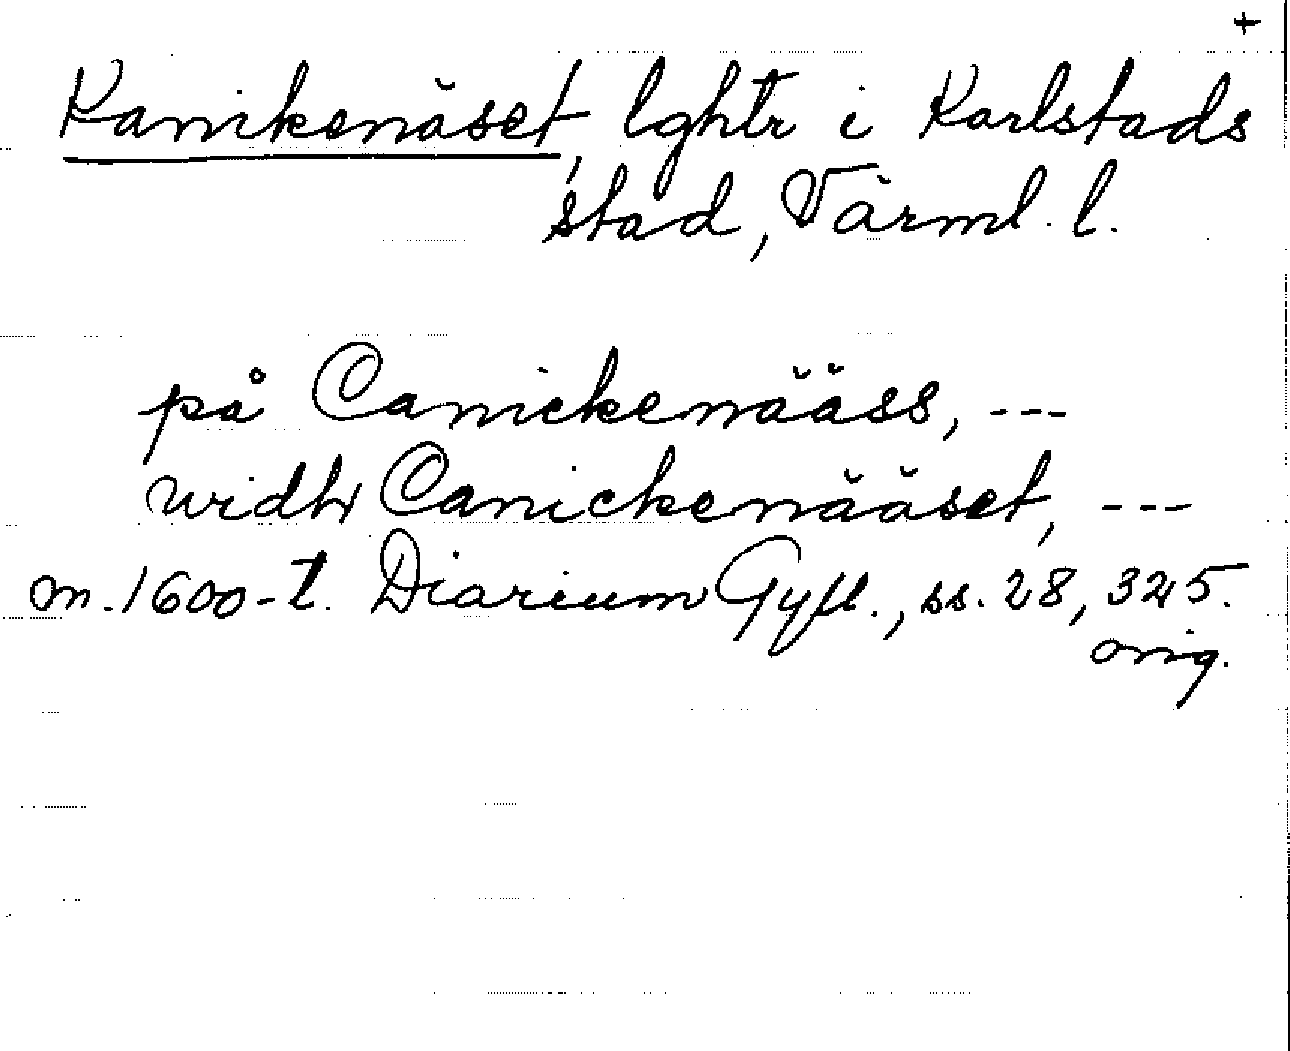 +
Kanikenäset, lghtr i Karlstads
stad, Värml. l.
på Canickenääss, ---
widh Canickenääset, ---
m. 1600-t. Diarium Gyll., ss. 28, 325.
orig.